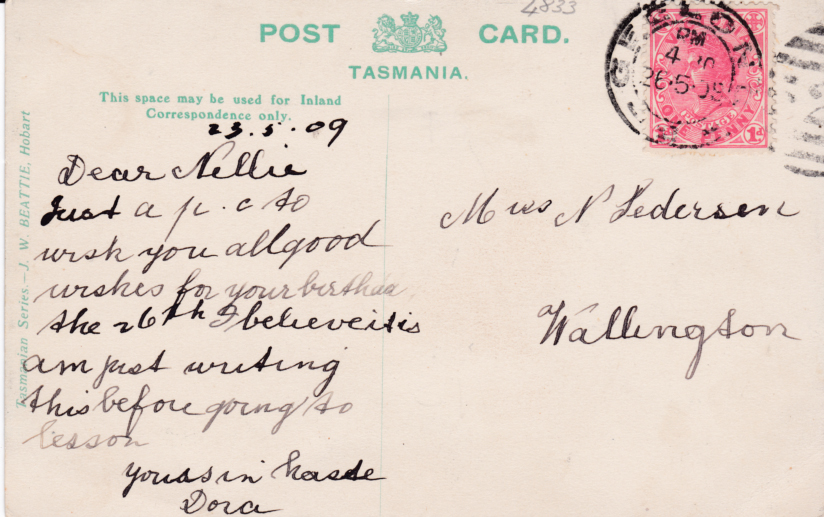 4833
POST CARD.
TASMANIA.
This space may be used for Inland
Correspondence only.
23.5.09
Dear Nellie
Just a p.c to
wish you all good
wishes for your birthda
the 26th I believe it is
am just writing
this before going to
lesson
yours in haste
Dora
Miss N Pedersen
Wallington
Tasmanian Series.—J. W. BEATTIE, Hobart
GEELONG
PM
4
26·5·09
ONE PENNY
1d